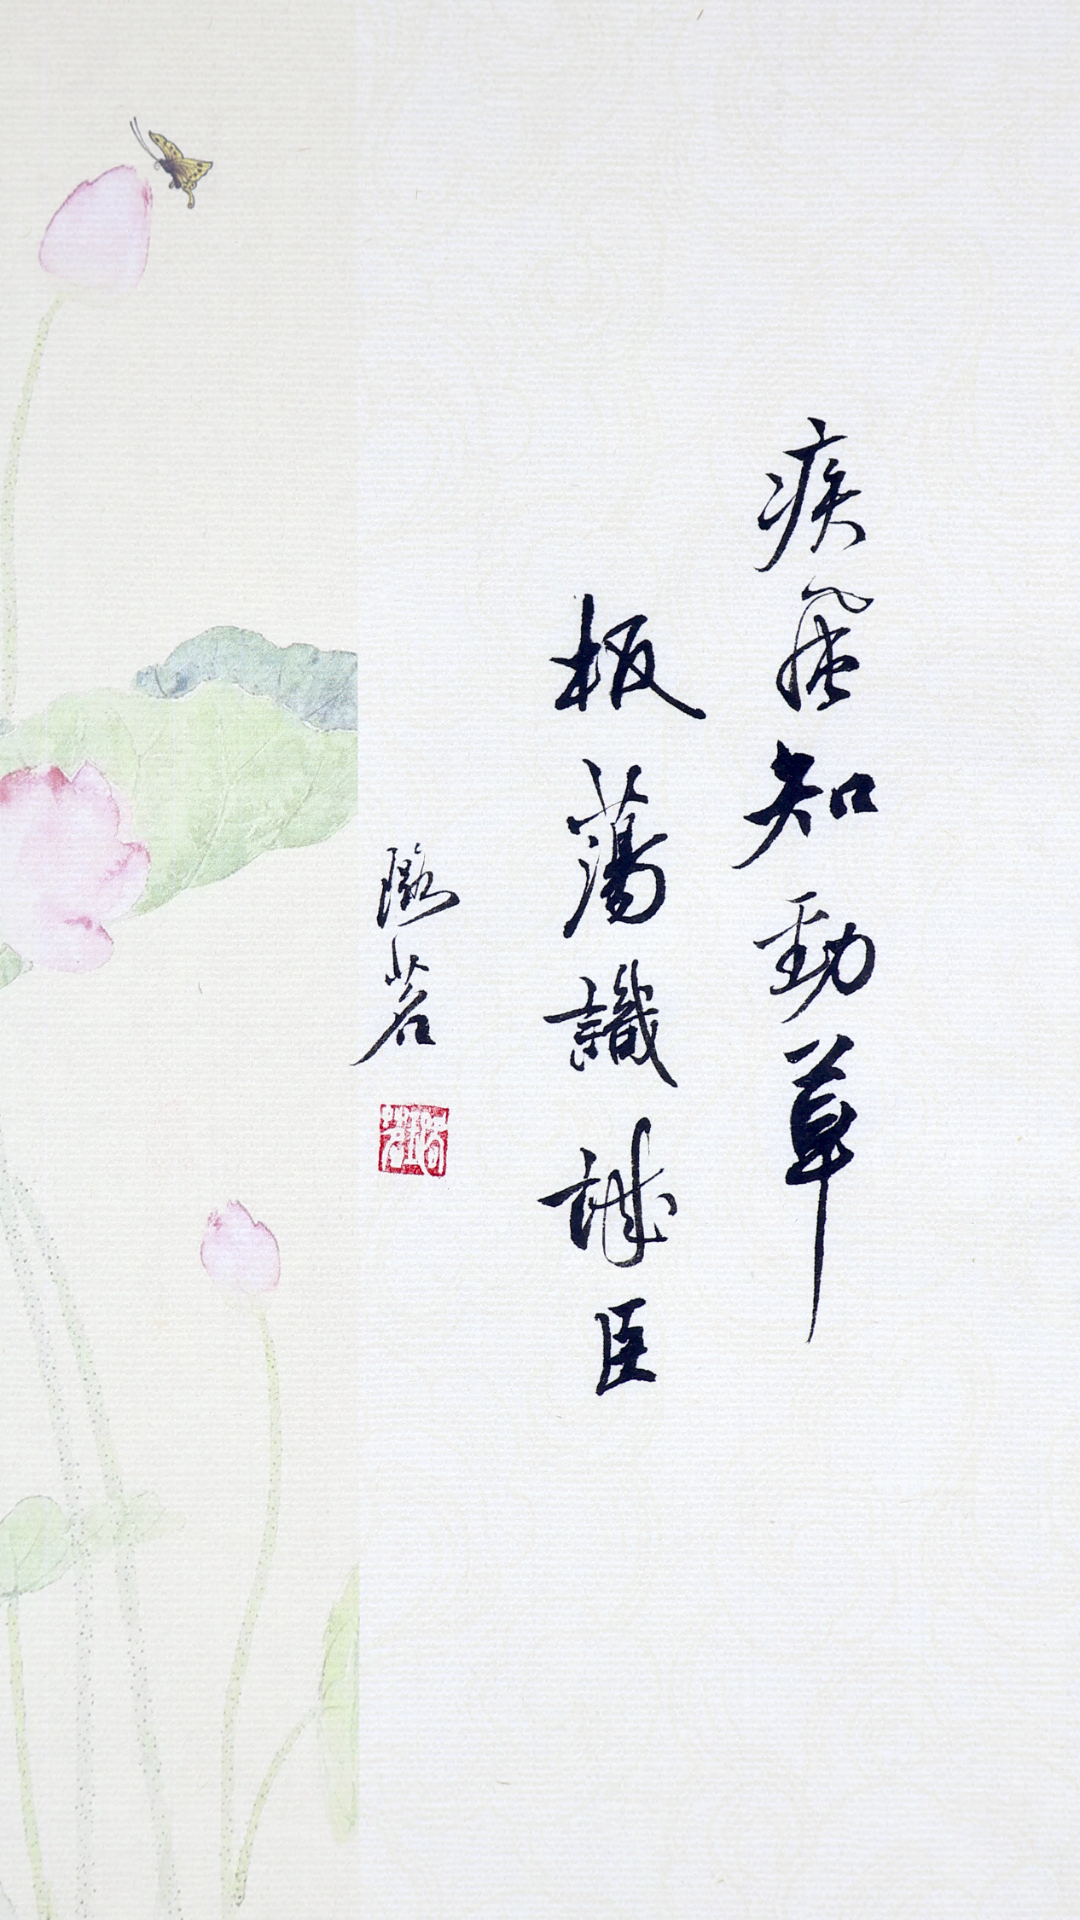 疾風知勁草
板蕩識誠臣